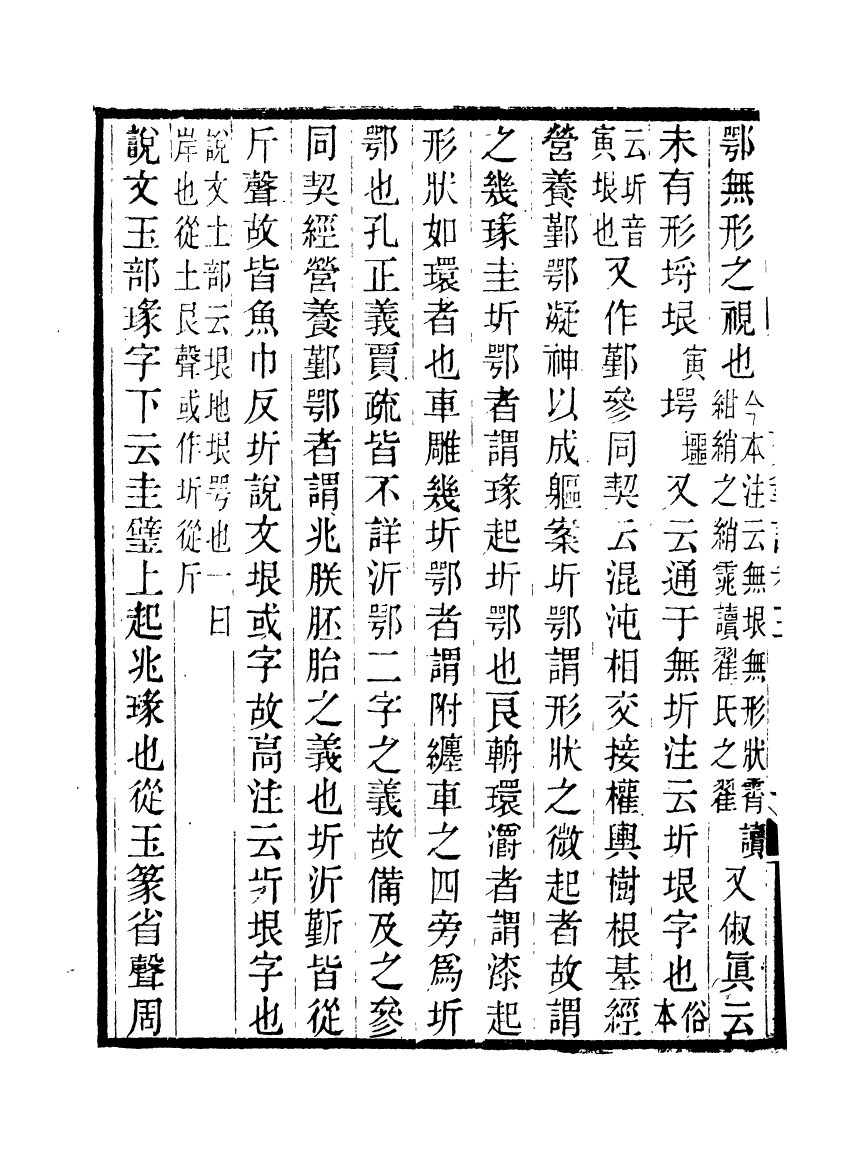 鄂無形之視也今本注云無垠無形狀霄讀紺綃之綃雿讀翟氏之翟又俶眞云
未有形埒垠寅堮又云通于無圻注云圻垠字也俗本
云圻音寅垠也又作鄞參同契云混沌相交接權輿樹根基經
營養鄞鄂凝神以成軀案圻鄂謂形狀之微起者故謂
之幾瑑圭圻鄂者謂瑑起圻鄂也良輈環灂者謂漆起
形狀如環者也車雕幾圻鄂者謂附纏車之四旁爲圻
鄂也孔正義賈疏皆不詳沂鄂二字之義故備及之參
同契經營養鄞鄂者謂兆朕胚胎之義也圻沂斳皆從
斤聲故皆魚巾反圻說文垠或字故高注云圻垠字也
說文土部云垠地垠咢也一曰
岸也從土艮聲或作圻從斤
說文玉部瑑字下云圭璧上起兆瑑也從玉篆省聲周